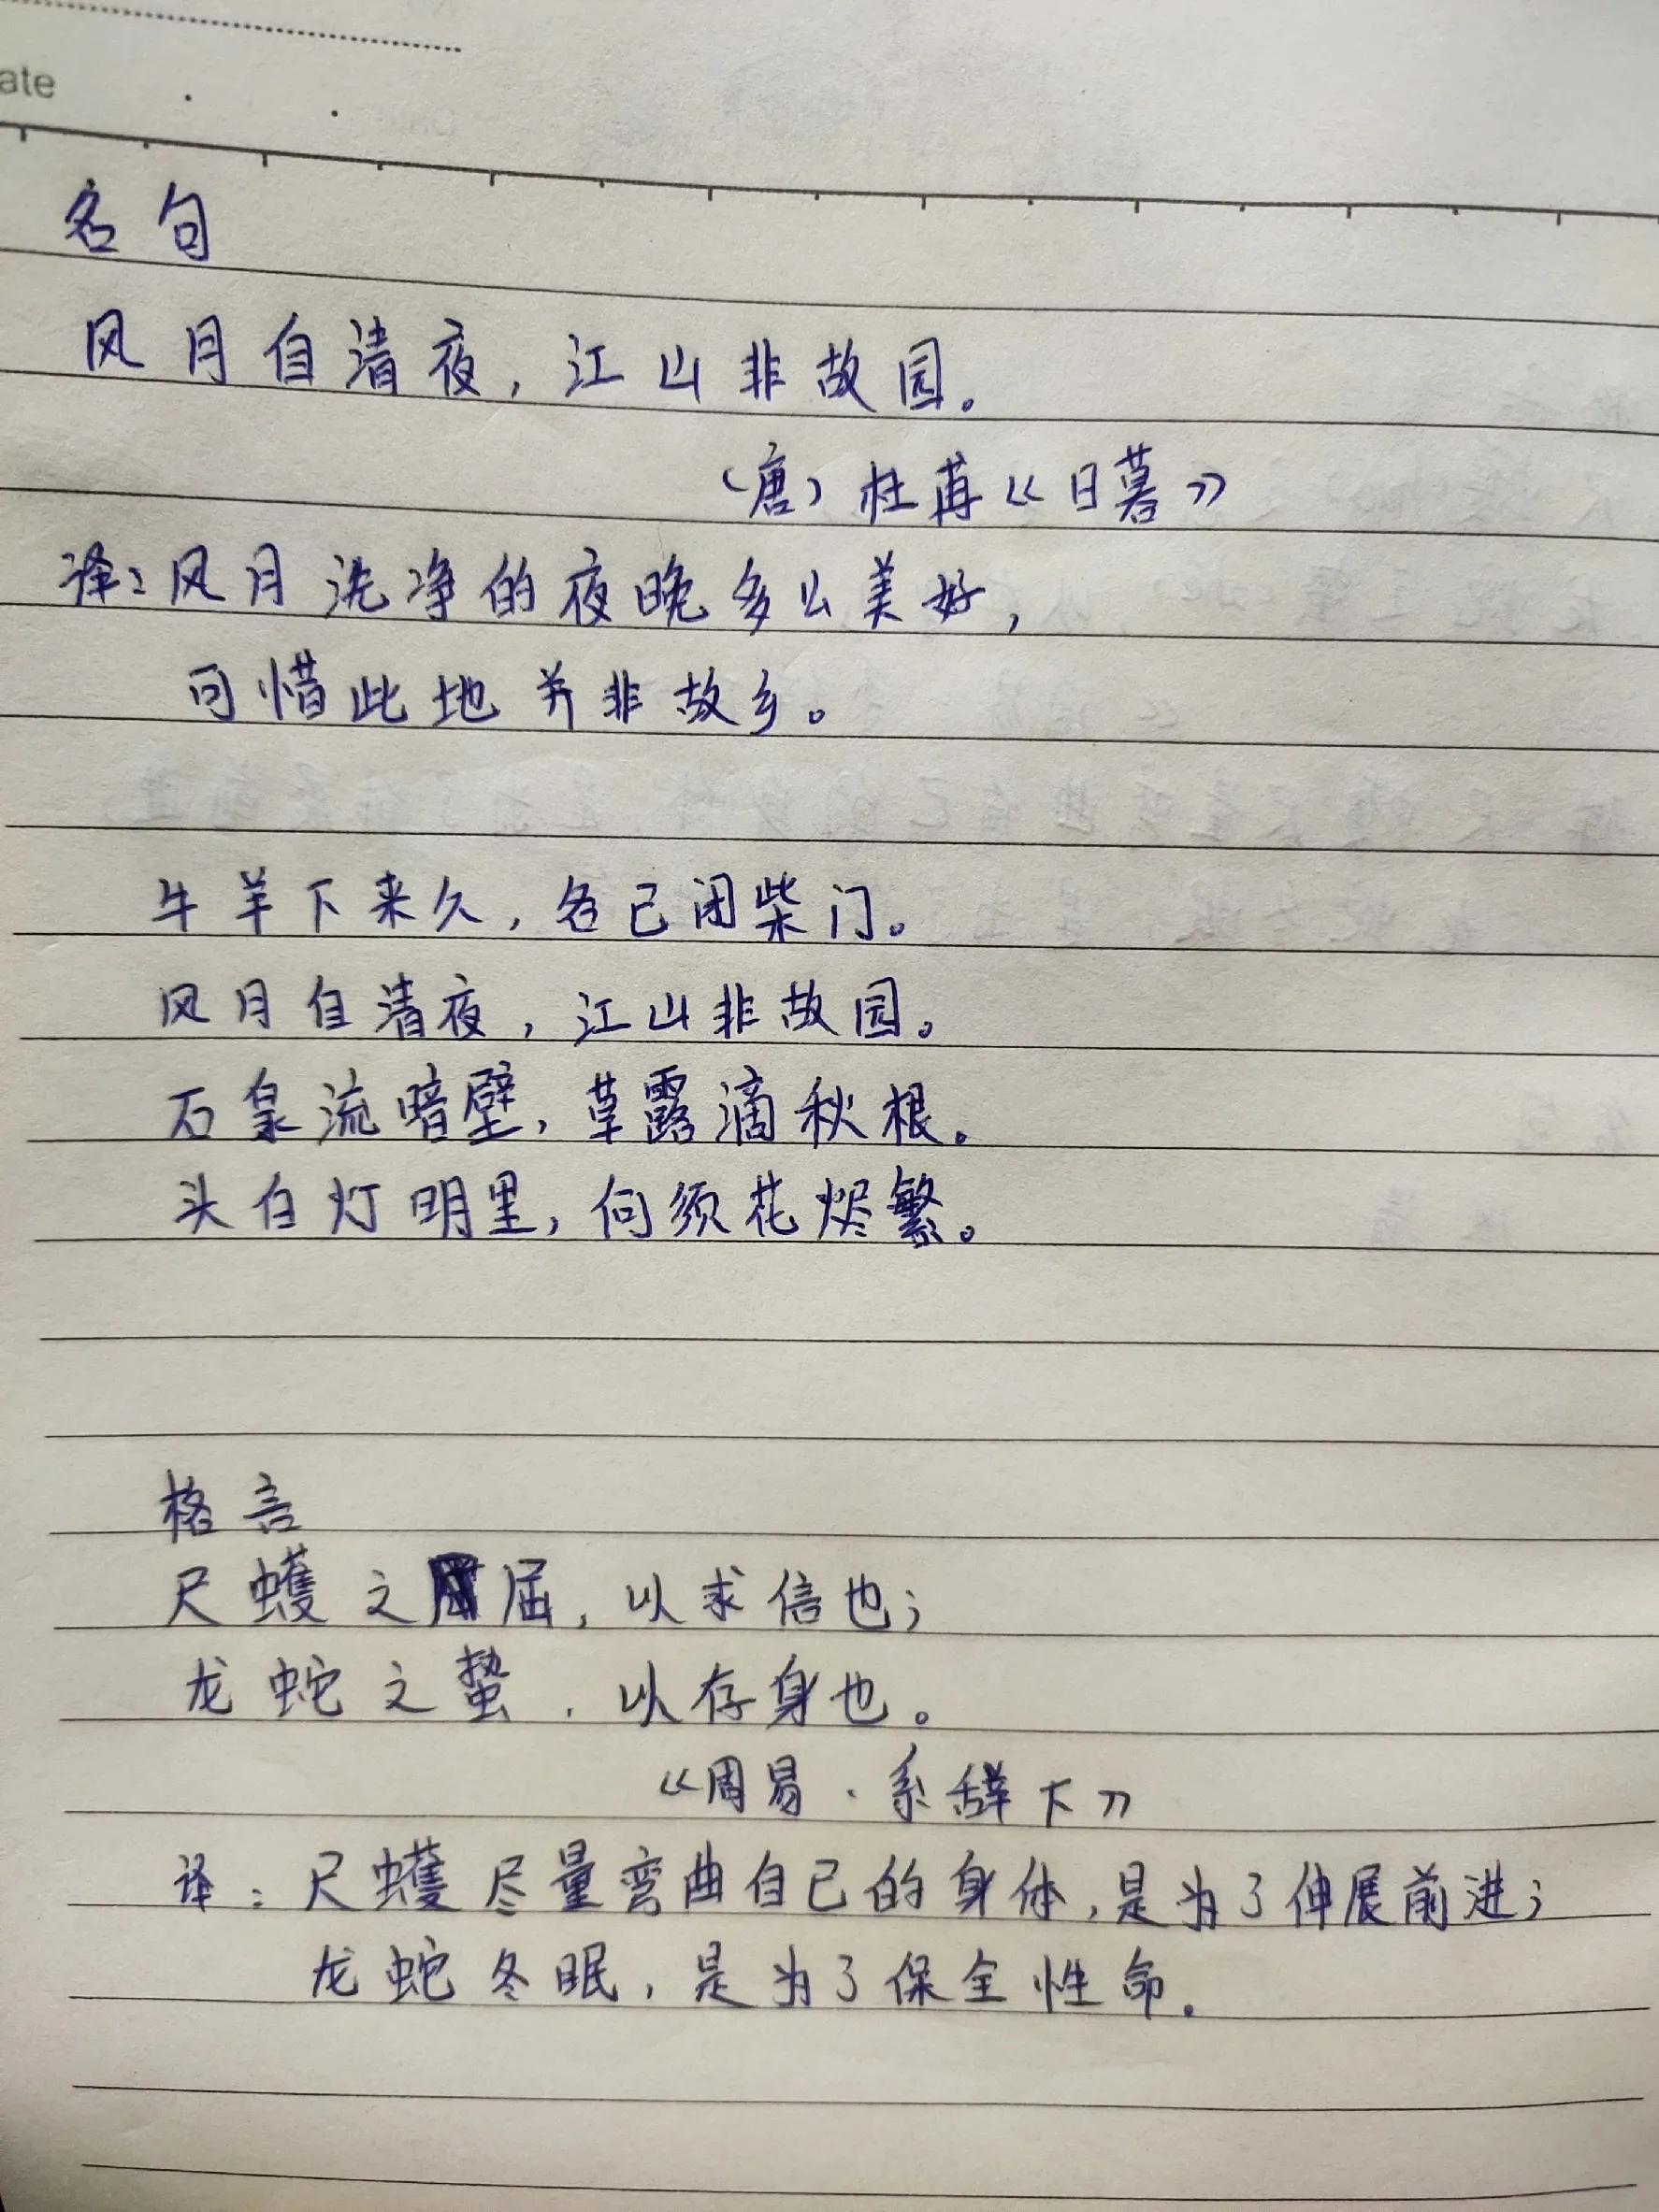 ate
名句
风月自清夜，江山非故园。
（唐）杜甫《日暮》
译：风月洗净的夜晚多么美好，
可惜此地并非故乡。
牛羊下来久，各已闭柴门。
风月自清夜，江山非故园。
石泉流暗壁，草露滴秋根。
头白灯明里，何须花烬繁。
格言
尺蠖之屈，以求信也；
龙蛇之蛰，以存身也。
《周易·系辞下》
译：尺蠖尽量弯曲自己的身体，是为了伸展前进；
龙蛇冬眠，是为了保全性命。